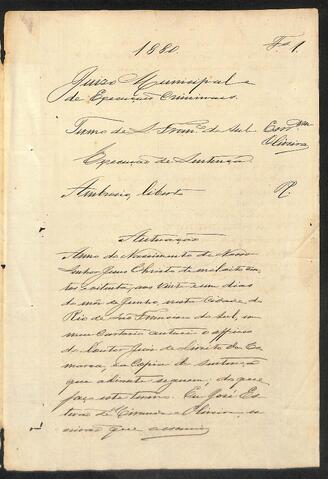 1880.
Fs 1.
Juizo Municipal e
de Execuções Criminaes.
Termo de S. Franco. do Sul
Escrm.
Oliveira
Execução de Sentença
Ambrosio, liberto
R.
Autuação
Anno do Nascimento de Nosso
Senhor Jesus Christo de mil oito cen-
tos e oitenta, aos vinte e um dias
do mez de Junho, nesta Cidade do
Rio de São Francisco do Sul, em
meu Cartorio autuei o officio
do Doutor Juiz de Direito da Co-
marca, e a Copia da sentença
que adiante seguem, do que
faço este termo. Eu José Es-
tevão de Miranda e Oliveira, es-
crivão que escrevi